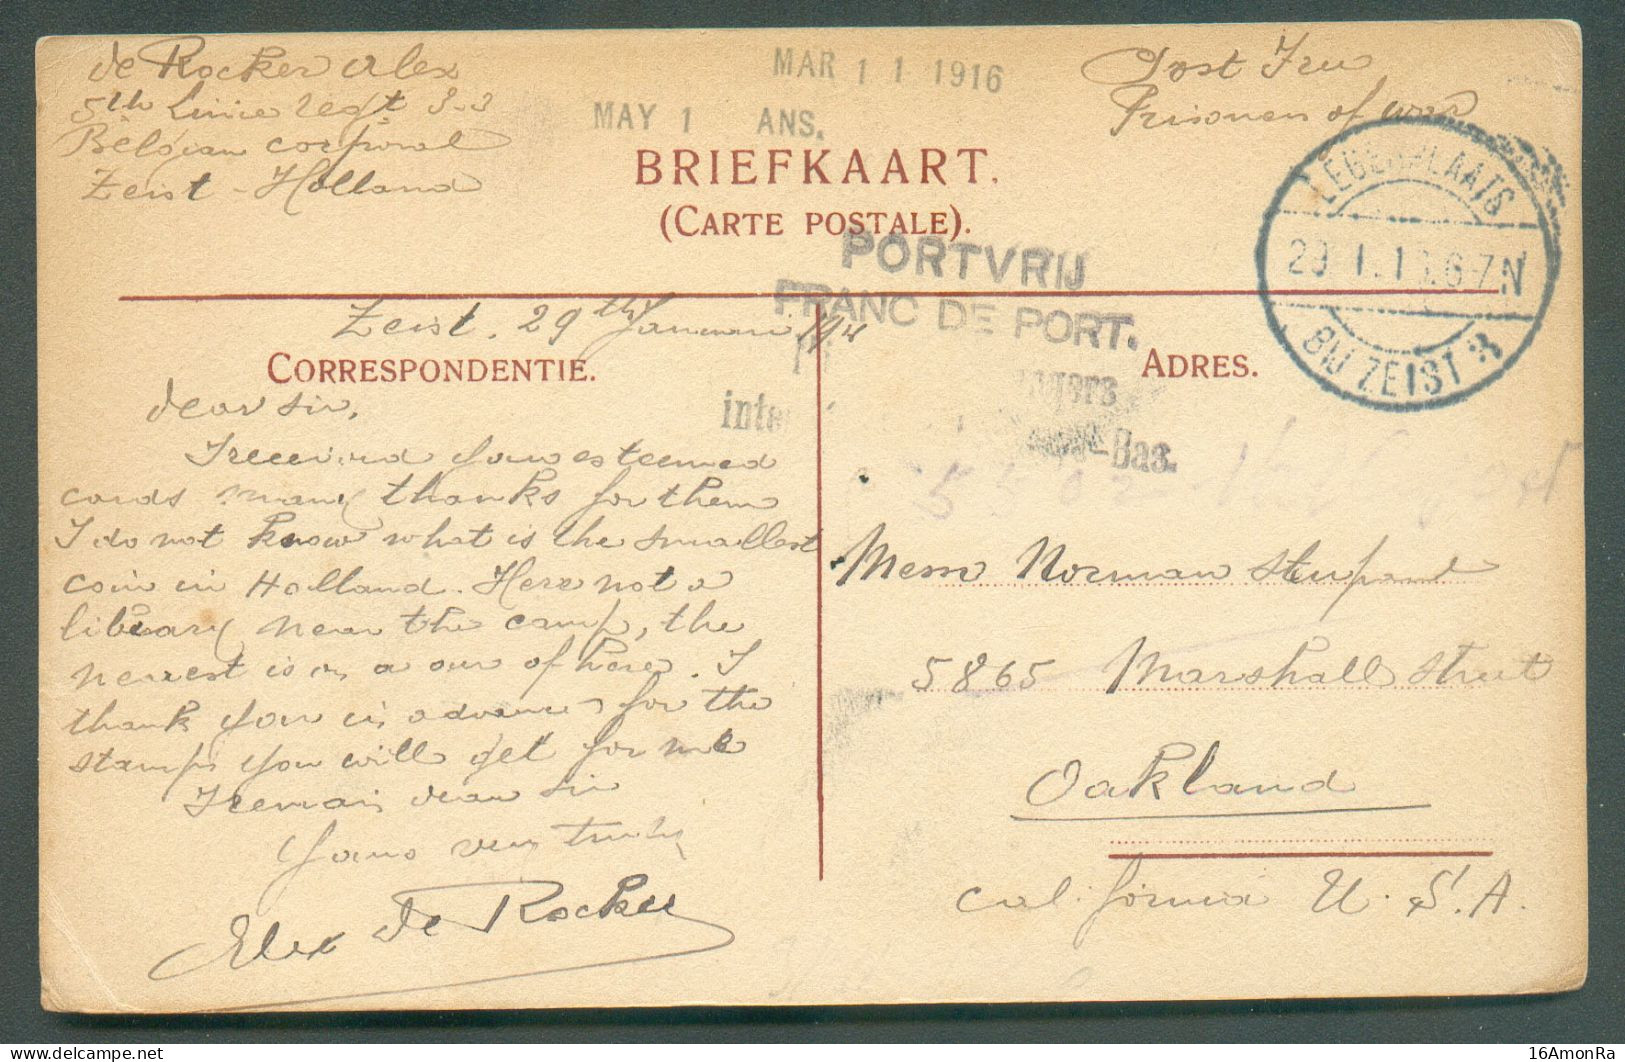 de Rocker Alex
5th Linie regt 3.3
Belgian corporal
Zeist - Holland
MAR 11 1916
MAY 1 ANS.
Post Free
Prisoner of war
BRIEFKAART.
(CARTE POSTALE).
LEGERPLAATS
29 1.1 .6-7N
BIJ ZEIST 3
PORTVRIJ
FRANC DE PORT.
Bas.
Zeist. 29th Januari
CORRESPONDENTIE.
dear sir,
I received your esteemed
cards many thanks for them
I do not know what is the smallest
coin in Holland. Here not a
library near the camp, the
nearest is on a our of here. I
thank you in advance for the
stamps you will get for me
I remain dear sir
Yours very truly
Alex De Rocker
ADRES.
Norman
5865 Marshall street
Oakland
California U.S.A.
16AmonRa